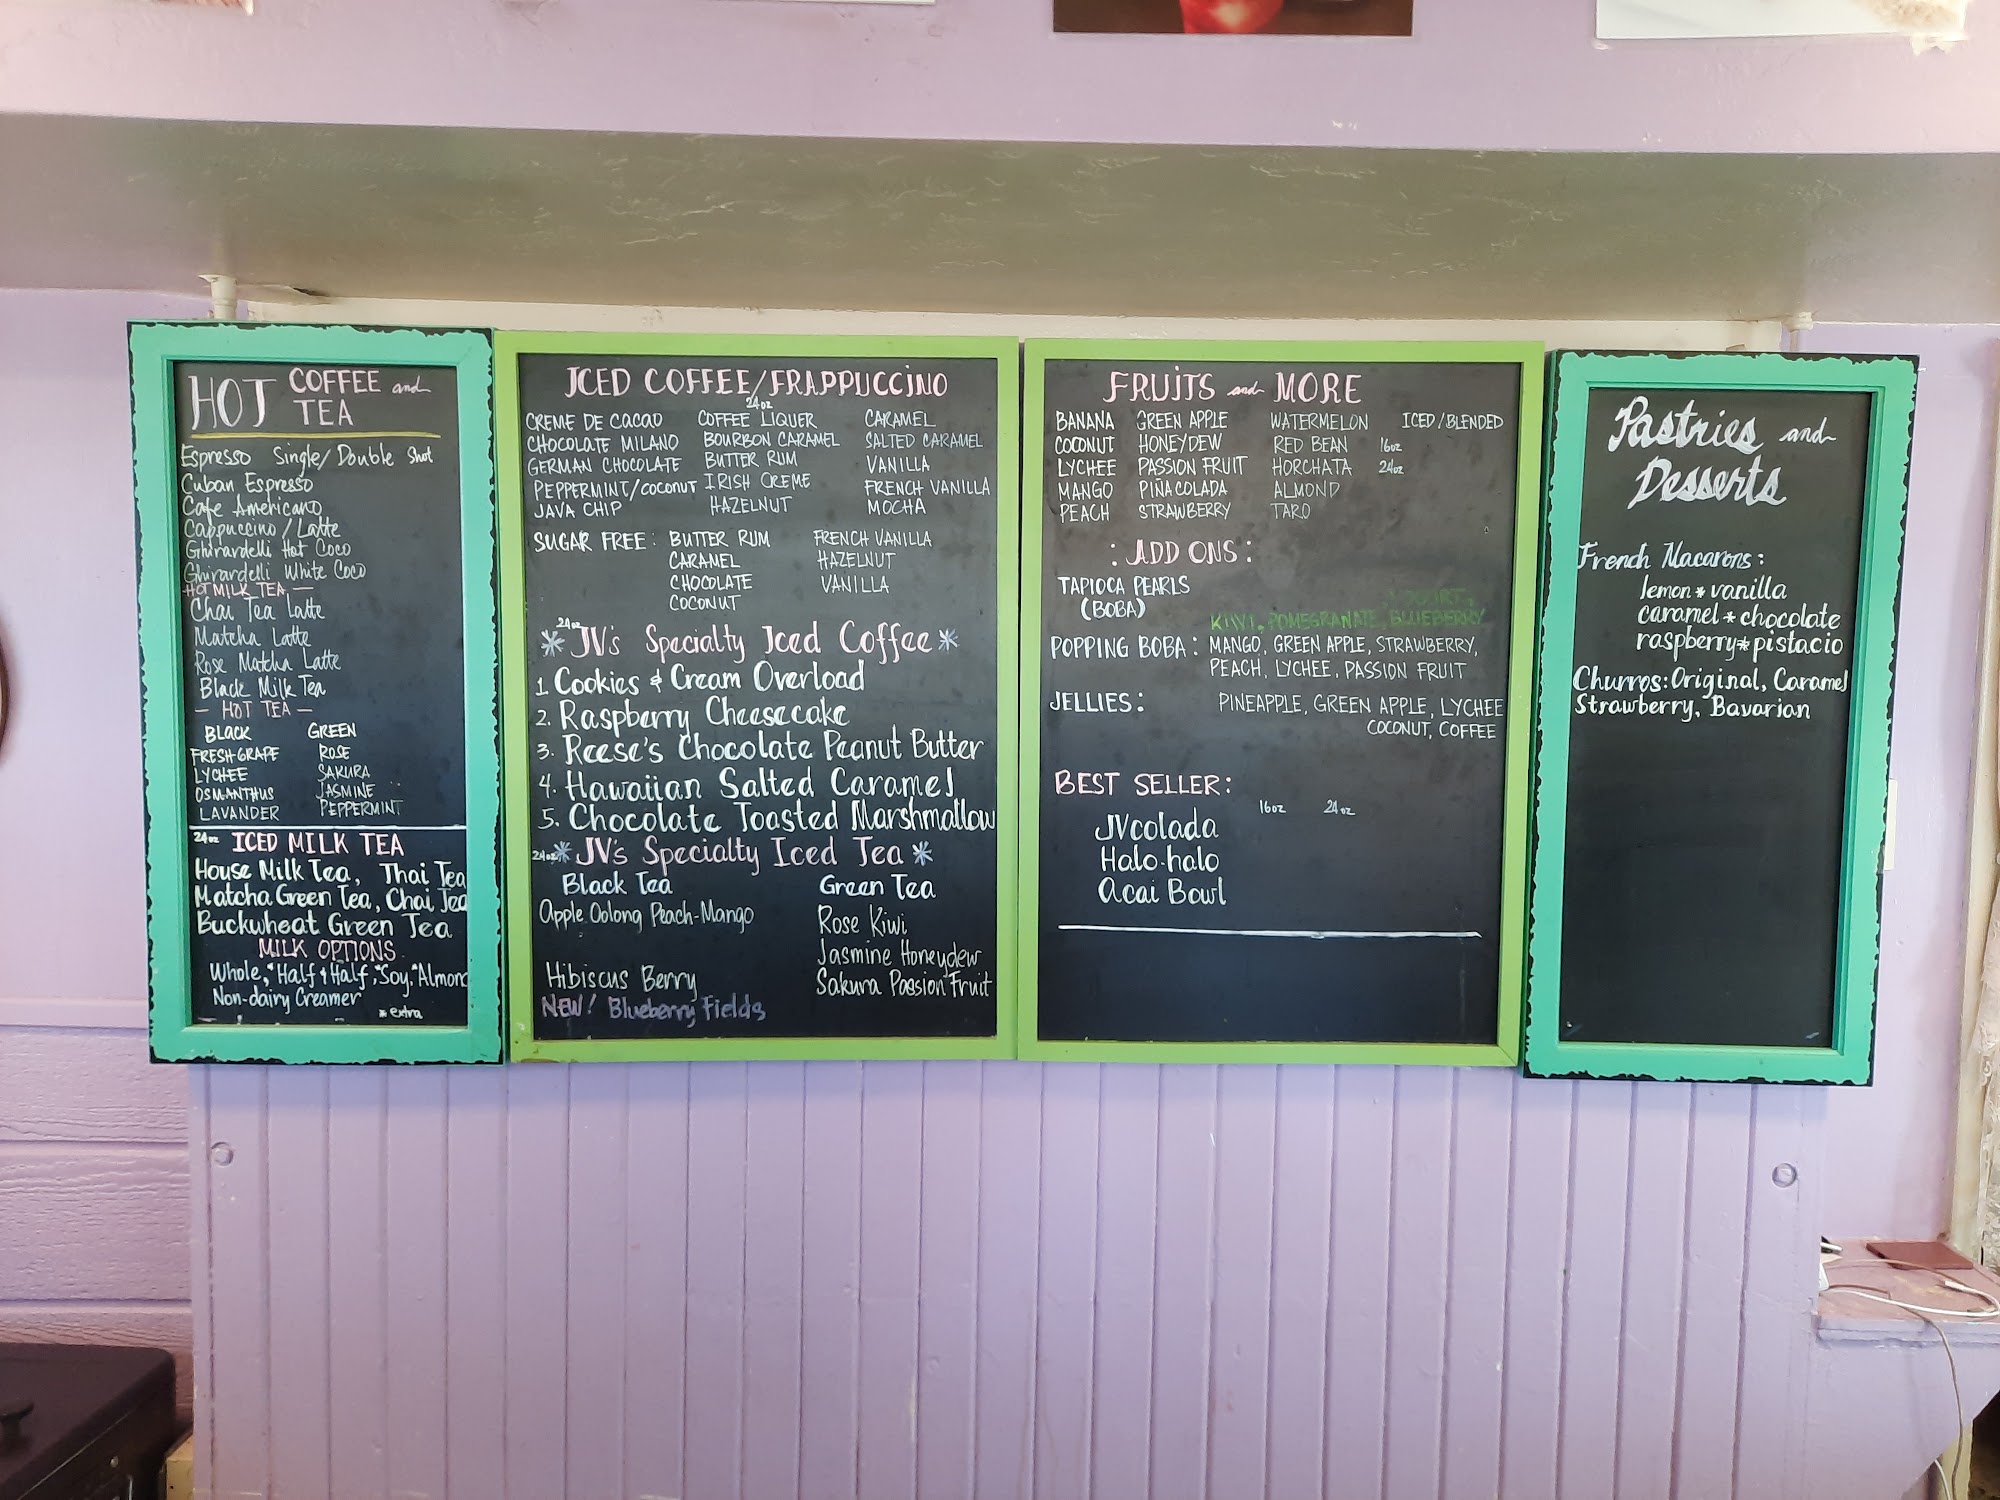 HOT COFFEE and
TEA
Espresso Single/Double Shot
Cuban Espresso
Cafe Americano
Cappuccino / Latte
Ghirardelli Hot Coco
Ghirardelli White Coco
HOT MILK TEA —
Chai Tea Latte
Matcha Latte
Rose Matcha Latte
Black Milk Tea
— HOT TEA —
BLACK GREEN
FRESH GRAPE ROSE
LYCHEE SAKURA
OSMANTHUS JASMINE
LAVANDER PEPPERMINT
24oz ICED MILK TEA
House Milk Tea, Thai Tea
Matcha Green Tea, Chai Tea
Buckwheat Green Tea
MILK OPTIONS
Whole, *Half & Half, *Soy, *Almond
Non-dairy Creamer
* extra
ICED COFFEE/FRAPPUCCINO
24oz
CREME DE CACAO COFFEE LIQUER CARAMEL
CHOCOLATE MILANO BOURBON CARAMEL SALTED CARAMEL
GERMAN CHOCOLATE BUTTER RUM VANILLA
PEPPERMINT/COCONUT IRISH CREME FRENCH VANILLA
JAVA CHIP HAZELNUT MOCHA
SUGAR FREE: BUTTER RUM FRENCH VANILLA
CARAMEL HAZELNUT
CHOCOLATE VANILLA
COCONUT
24oz
* JV's Specialty Iced Coffee *
1. Cookies & Cream Overload
2. Raspberry Cheesecake
3. Reese's Chocolate Peanut Butter
4. Hawaiian Salted Caramel
5. Chocolate Toasted Marshmallow
24oz * JV's Specialty Iced Tea *
Black Tea Green Tea
Apple Oolong Peach-Mango Rose Kiwi
Jasmine Honeydew
Hibiscus Berry Sakura Passion Fruit
NEW! Blueberry Fields
FRUITS and MORE
BANANA GREEN APPLE WATERMELON ICED/BLENDED
COCONUT HONEYDEW RED BEAN 16oz
LYCHEE PASSION FRUIT HORCHATA 24oz
MANGO PIÑA COLADA ALMOND
PEACH STRAWBERRY TARO
: ADD ONS :
TAPIOCA PEARLS
(BOBA)
KIWI, POMEGRANATE, BLUEBERRY
POPPING BOBA: MANGO, GREEN APPLE, STRAWBERRY,
PEACH, LYCHEE, PASSION FRUIT
JELLIES: PINEAPPLE, GREEN APPLE, LYCHEE
COCONUT, COFFEE
BEST SELLER:
16oz 24oz
JVcolada
Halo-halo
Acai Bowl
Pastries and
Desserts
French Macarons:
lemon * vanilla
caramel * chocolate
raspberry * pistacio
Churros: Original, Caramel
Strawberry, Bavarian